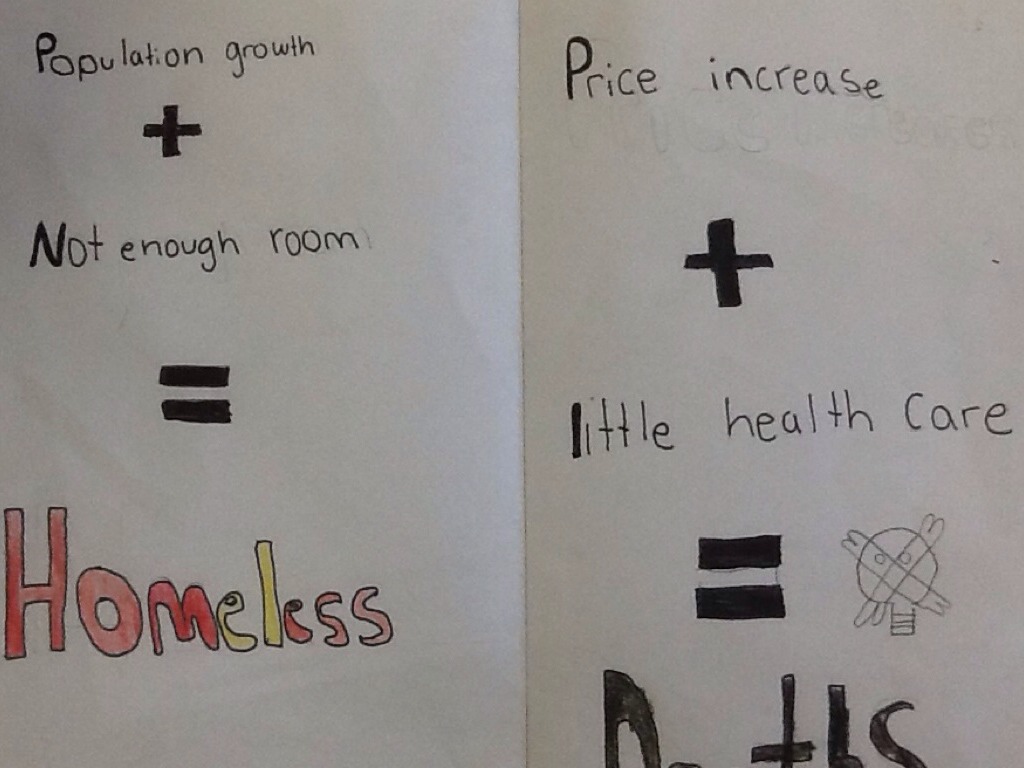 Population growth
+
Not enough room
=
Homeless
Price increase
+
little health Care
=